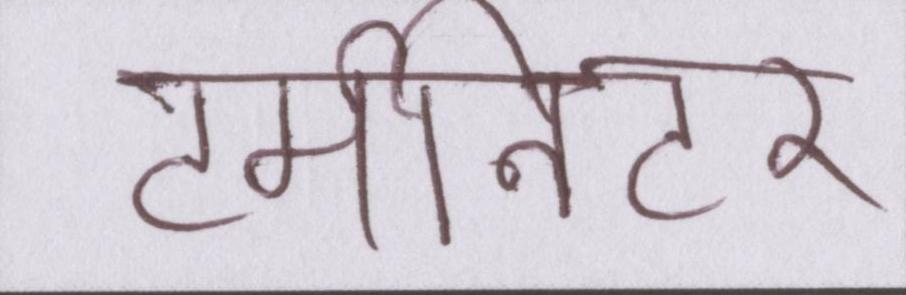 टर्मीनिटर